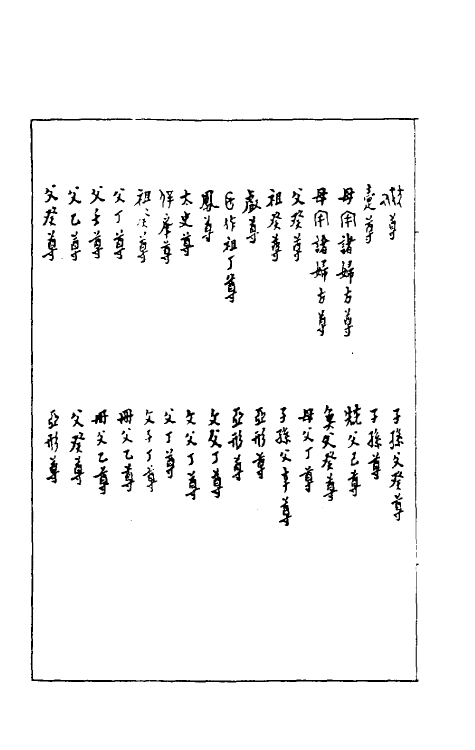 尊
壴尊
母用諸婦方尊
母用諸婦方尊
父癸尊
祖癸尊
尊
作祖丁尊
鳳尊
太史尊
尊
祖尊
父丁尊
父子尊
父乙尊
父癸尊
子孫父癸尊
子孫尊
父己尊
父癸尊
母父丁尊
子孫父辛尊
亞形尊
亞形尊
文父丁尊
文父丁尊
父丁尊
文子丁尊
冊父乙尊
冊父乙尊
父癸尊
亞形尊